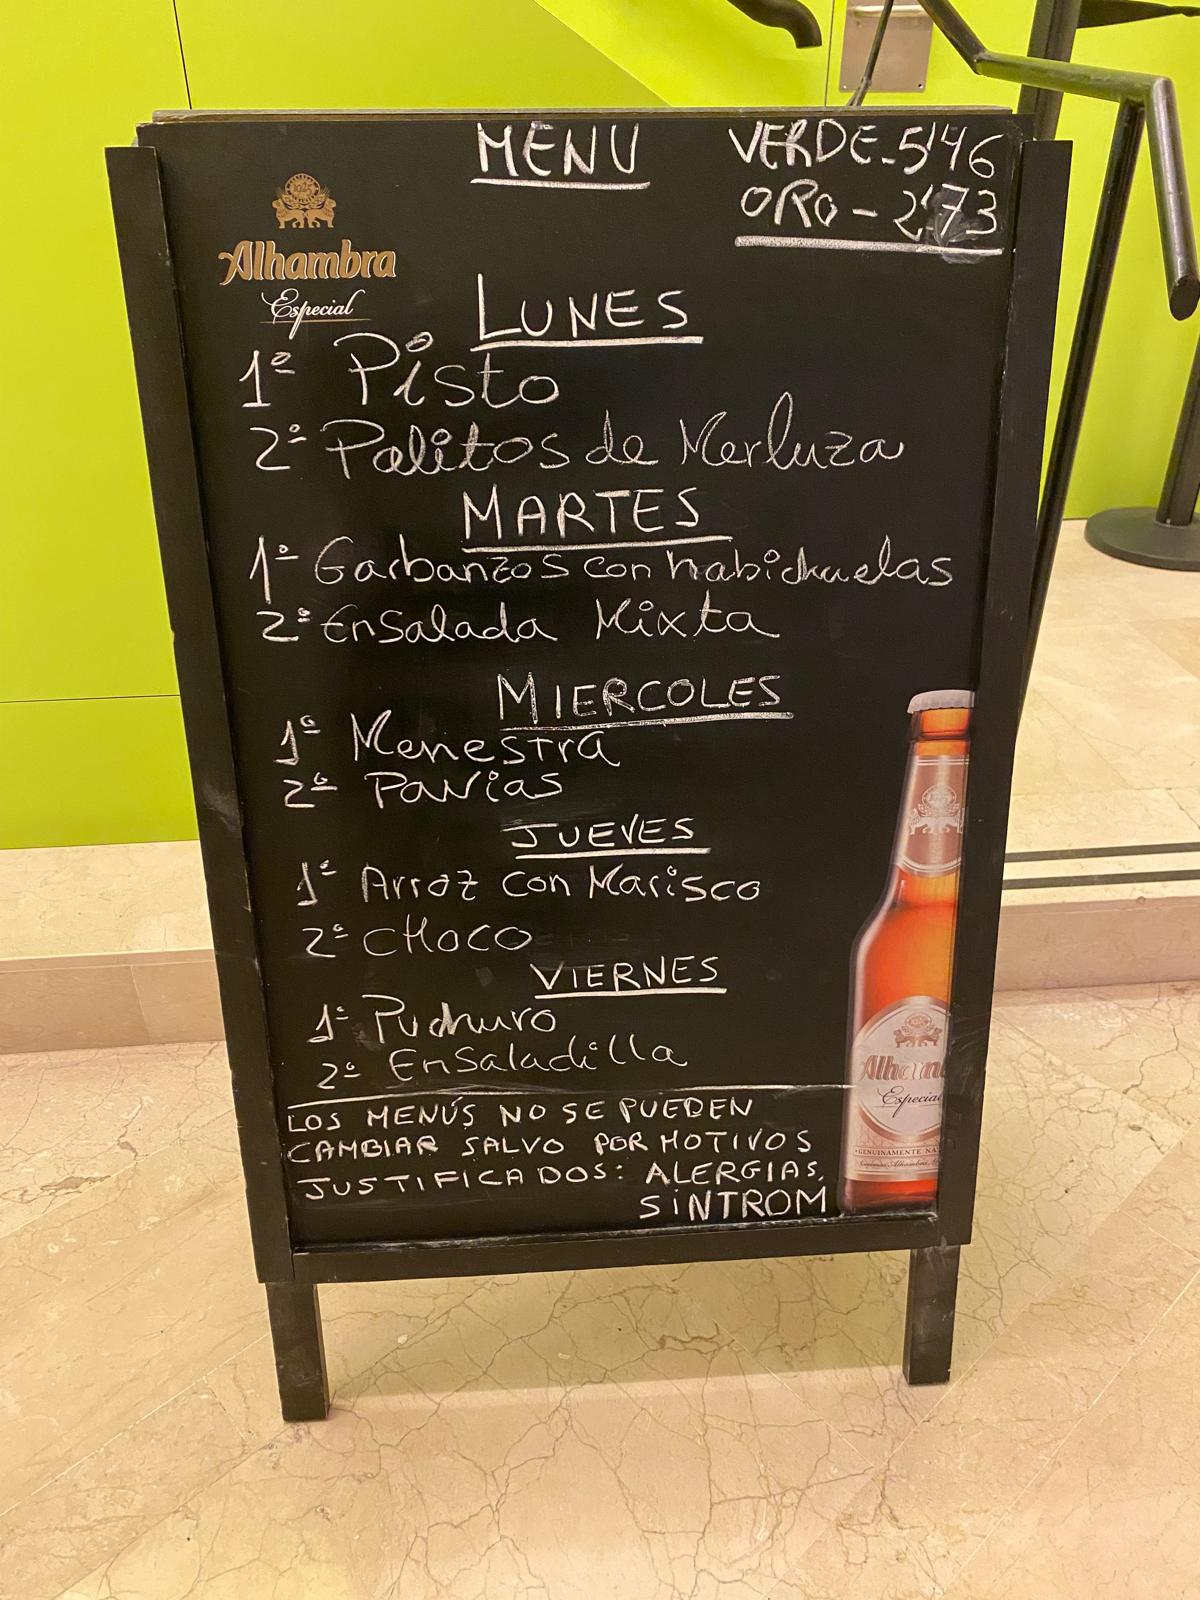 MENU
VERDE-5'46
ORO - 2'73
Alhambra
Especial
LUNES
1º Pisto
2º Palitos de Merluza
MARTES
1º Garbanzos con habichuelas
2º Ensalada Mixta
MIERCOLES
1º Menestra
2º Pavias
JUEVES
1º Arroz con Marisco
2º CHOCO
VIERNES
1º Puchuro
2º Ensaladilla
LOS MENÚS NO SE PUEDEN
CAMBIAR SALVO POR MOTIVOS
JUSTIFICADOS: ALERGIAS,
SINTROM
Alham
Especial
GENUINAMENTE NA